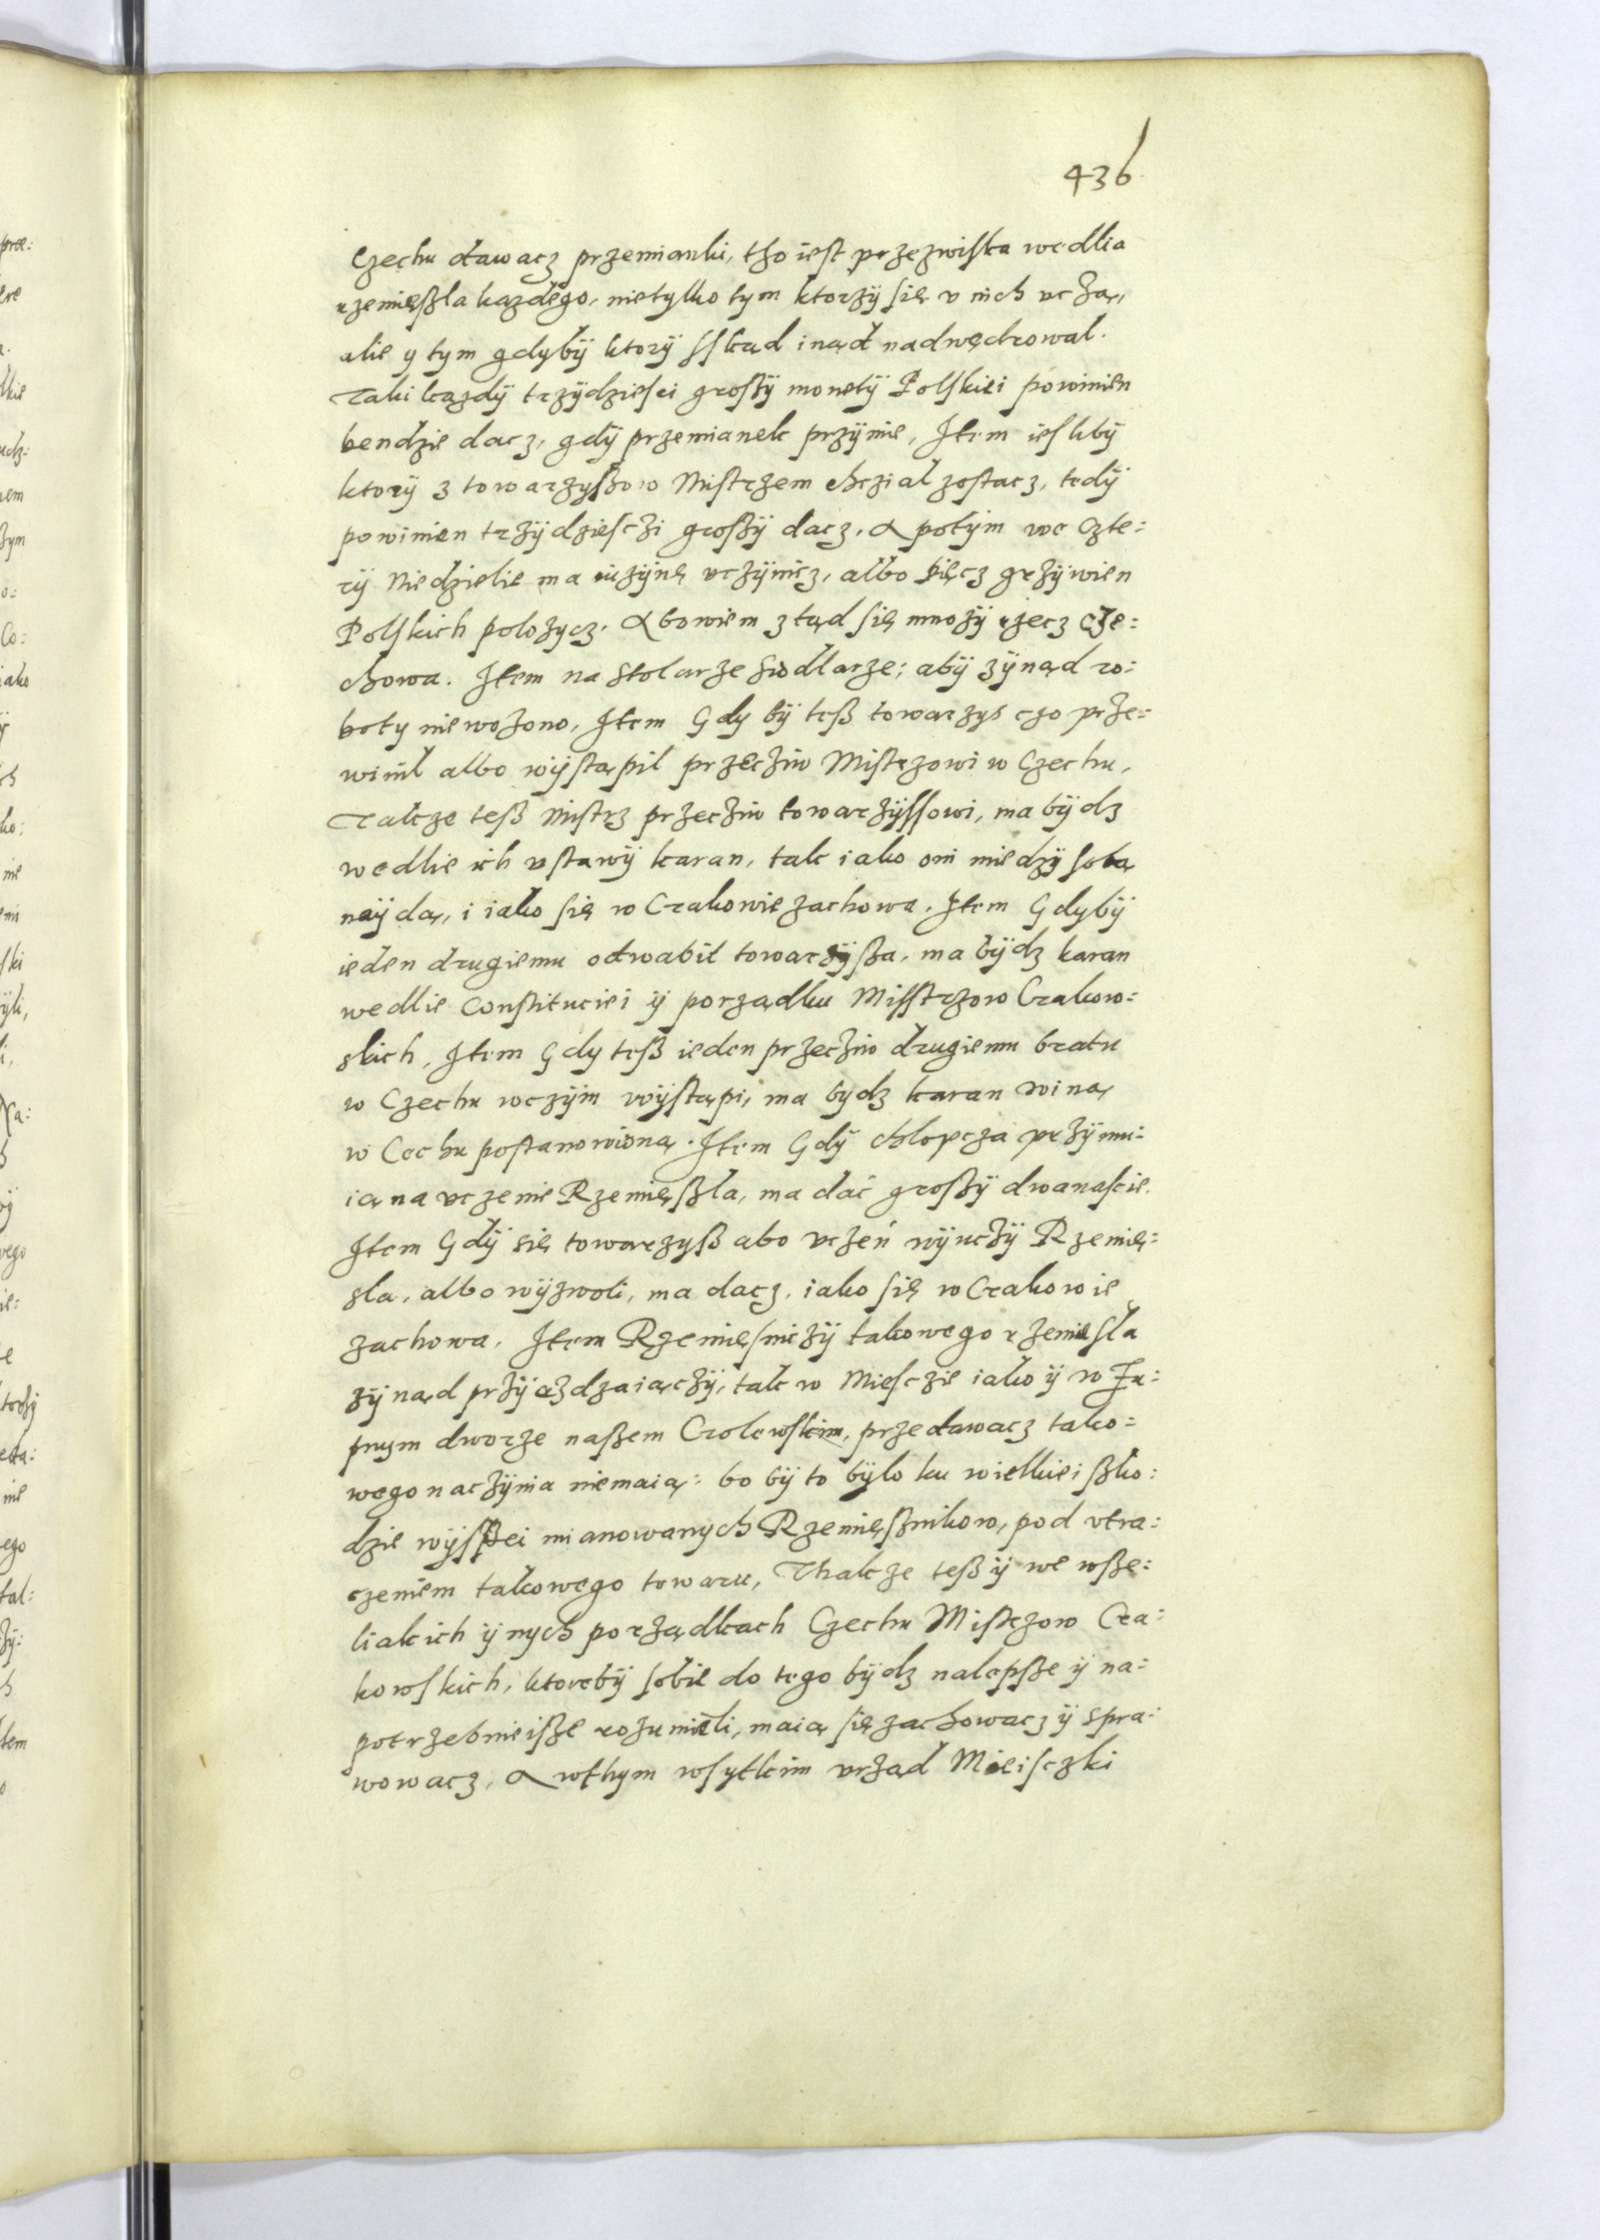 436
Czechu dawacz przemianki, tho iest przezwiska wedlia
rzemięszla kazdego, nietylko tym ktorzÿ się v nich vczą,
alie y tym gdybÿ ktorÿ sskąd inąd nadwędrowal.
Taki kazdÿ trzÿdziesci groszÿ monetÿ Polskiei powinien
bendzie dacz, gdÿ przemianek przÿmie, Item iesliby
ktorÿ z towarzyszow Mistrzem chczial zostacz, tedÿ
powinien trzÿdziesczi groszÿ dacz. A potÿm we czte:
rÿ Niedzielie ma vczÿnicz, albo pięcz grzÿwien
Polskich polozycz. Abowiem ztąd się mnozÿ rzecz cze:
chowa. Item na stolarze siodlarze; abÿ zÿnąd ro:
boty niewożono, Item Gdy bÿ tesz towarzys czo prze:
winil albo wÿstąpil przecziw Mistrzowi w Czechu,
Takze tesz Mistrz przecziw towarzÿssowi, ma bÿdz
wedlie ich vstawÿ karan, tak iako oni miedzÿ sobą
naÿdą, i iako się w Crakowie zachowa. Item Gdybÿ
ieden drugiemu odwabil towarzÿsza, ma bÿdz karan
wedlie Constituciei ÿ porządku Misstrzow Crakow:
skich, Item Gdy tesz ieden przecziw drugiemu bratu
w Czechu wczÿm wÿstąpi, ma bydz karan winą
w Cechu postanowioną. Item Gdÿ chlopcza przÿmu:
ią na vczenie Rzemięszla, ma dać groszÿ dwanascie.
Item Gdÿ się towarzysz abo vczeń wÿuczÿ Rzemię:
sla, albo wÿzwoli, ma dacz, iako się w Crakowie
zachowa. Item Rzemięsniczÿ takowego rzemiesla
zÿnąd przÿezdzaiączÿ, tak w Miesczie iako ÿ w Zu:
pnym dworze naszem Crolewskim, przedawacz tako:
wego naczÿnia niemaią: bo bÿ to bÿlo ku wielkiei szko:
dzie wÿsszei mianowanych Rzemięsznikow, pod vtra:
czeniem takowego towaru, Thakze tesz ÿ we wsze:
liakich ÿnych porządkach Czechu Mistrzow Cra:
kowskich, ktorebÿ sobie do tego bÿdz nalepsze ÿ na:
potrzebnieisze rozumieli, maią się zachowacz ÿ spra:
wowacz, A wthym wsytkim vrząd Mieisczki